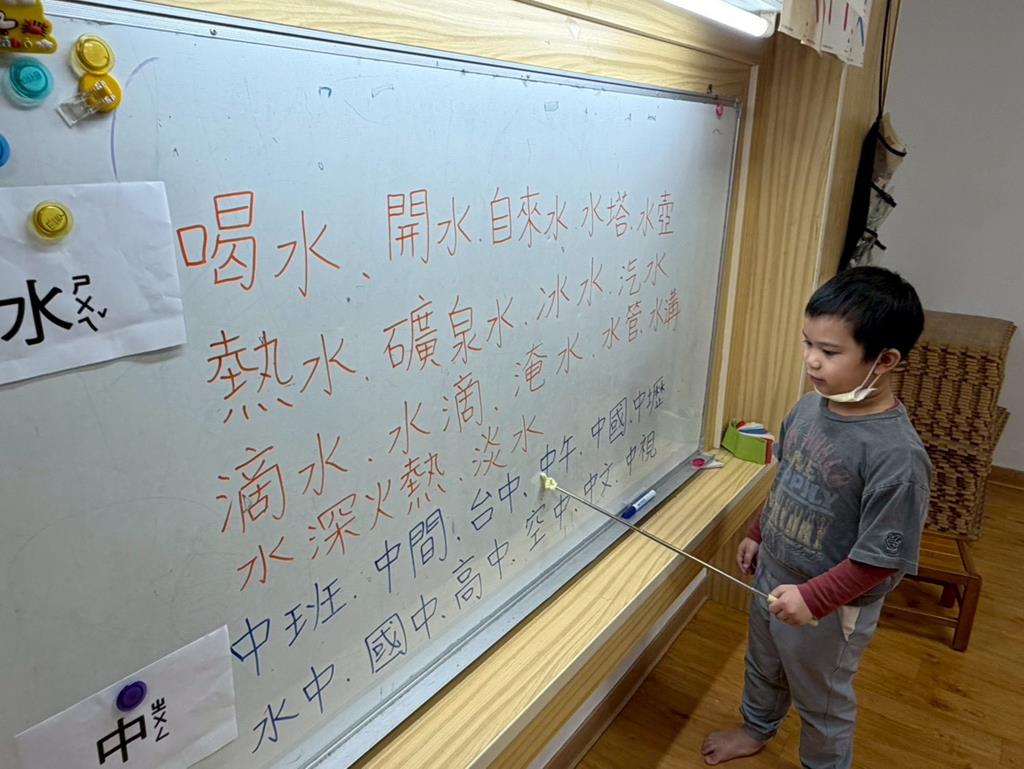 水 ㄕㄨㄟˇ
喝水、開水.自來水.水塔.水壺
熱水.礦泉水.冰水.汽水
滴水.水滴.淹水.水管.水溝
水深火熱.淡水
中班.中間.台中.中午.中國.中壢
水中.國中.高中.空中.中文.中視
中 ㄓㄨㄥ